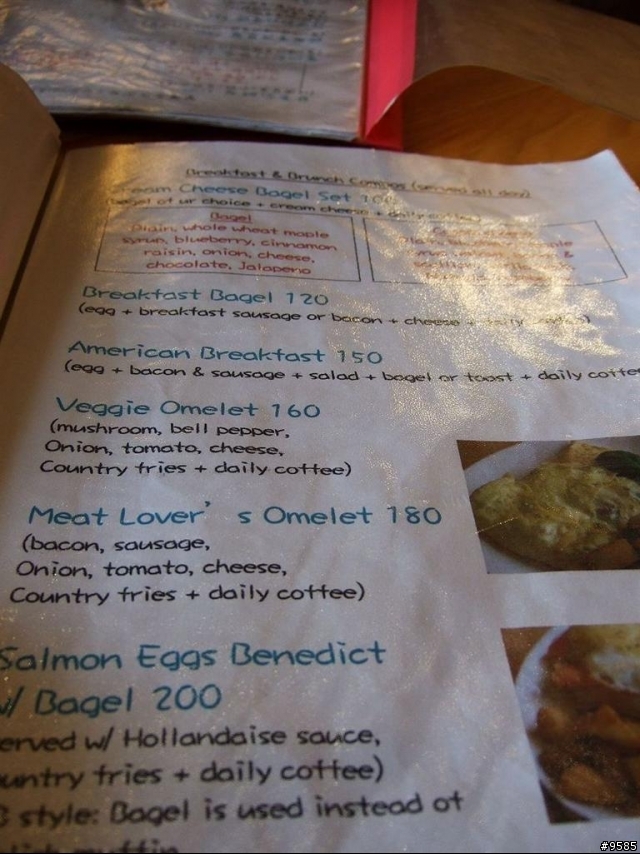 Breakfast & Brunch Combos (served all day)
Cream Cheese Bagel Set 100
(bagel of ur choice + cream cheese + daily coffee)
Bagel
Plain, whole wheat maple
syrup, blueberry, cinnamon
raisin, onion, cheese,
chocolate, Jalapeno
Breakfast Bagel 120
(egg + breakfast sausage or bacon + cheese + daily coffee)
American Breakfast 150
(egg + bacon & sausage + salad + bagel or toast + daily coffee
Veggie Omelet 160
(mushroom, bell pepper,
Onion, tomato, cheese,
Country fries + daily coffee)
Meat Lover's Omelet 180
(bacon, sausage,
Onion, tomato, cheese,
Country fries + daily coffee)
Salmon Eggs Benedict
w/ Bagel 200
erved w/ Hollandaise sauce,
untry fries + daily coffee)
style: Bagel is used instead of
muffin
#9585